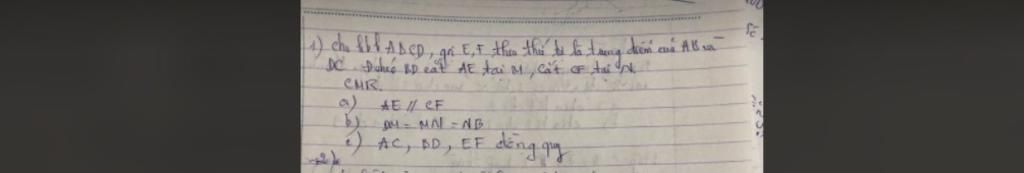 1) cho hbh ABCD, gọi E, F theo thứ tự là trung điểm của AB và
DC. Đchéo BD cắt AE tại M, cắt CF tại N.
CMR.
a) AE // CF
b) DM = MN = NB
c) AC, BD, EF đồng quy
2)